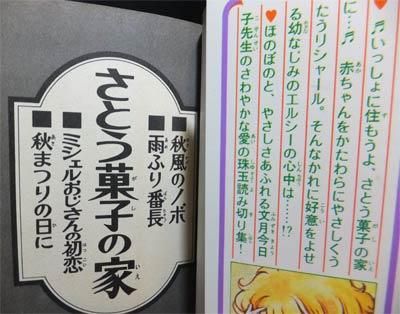 ♥♬いっしょに住もうよ、さとう菓子の家
に…♬ 赤ちゃんをかたわらにやさしくう
たうリシャール。そんなかれに好意をよせ
る幼なじみのエルシーの心中は……!?
♥ほのぼのと、やさしさあふれる文月今日
子先生のさわやかな愛の珠玉読み切り集!
■秋風のノボ
■雨ふり番長
さとう菓子の家
■ミシェルおじさんの初恋
■秋まつりの日に